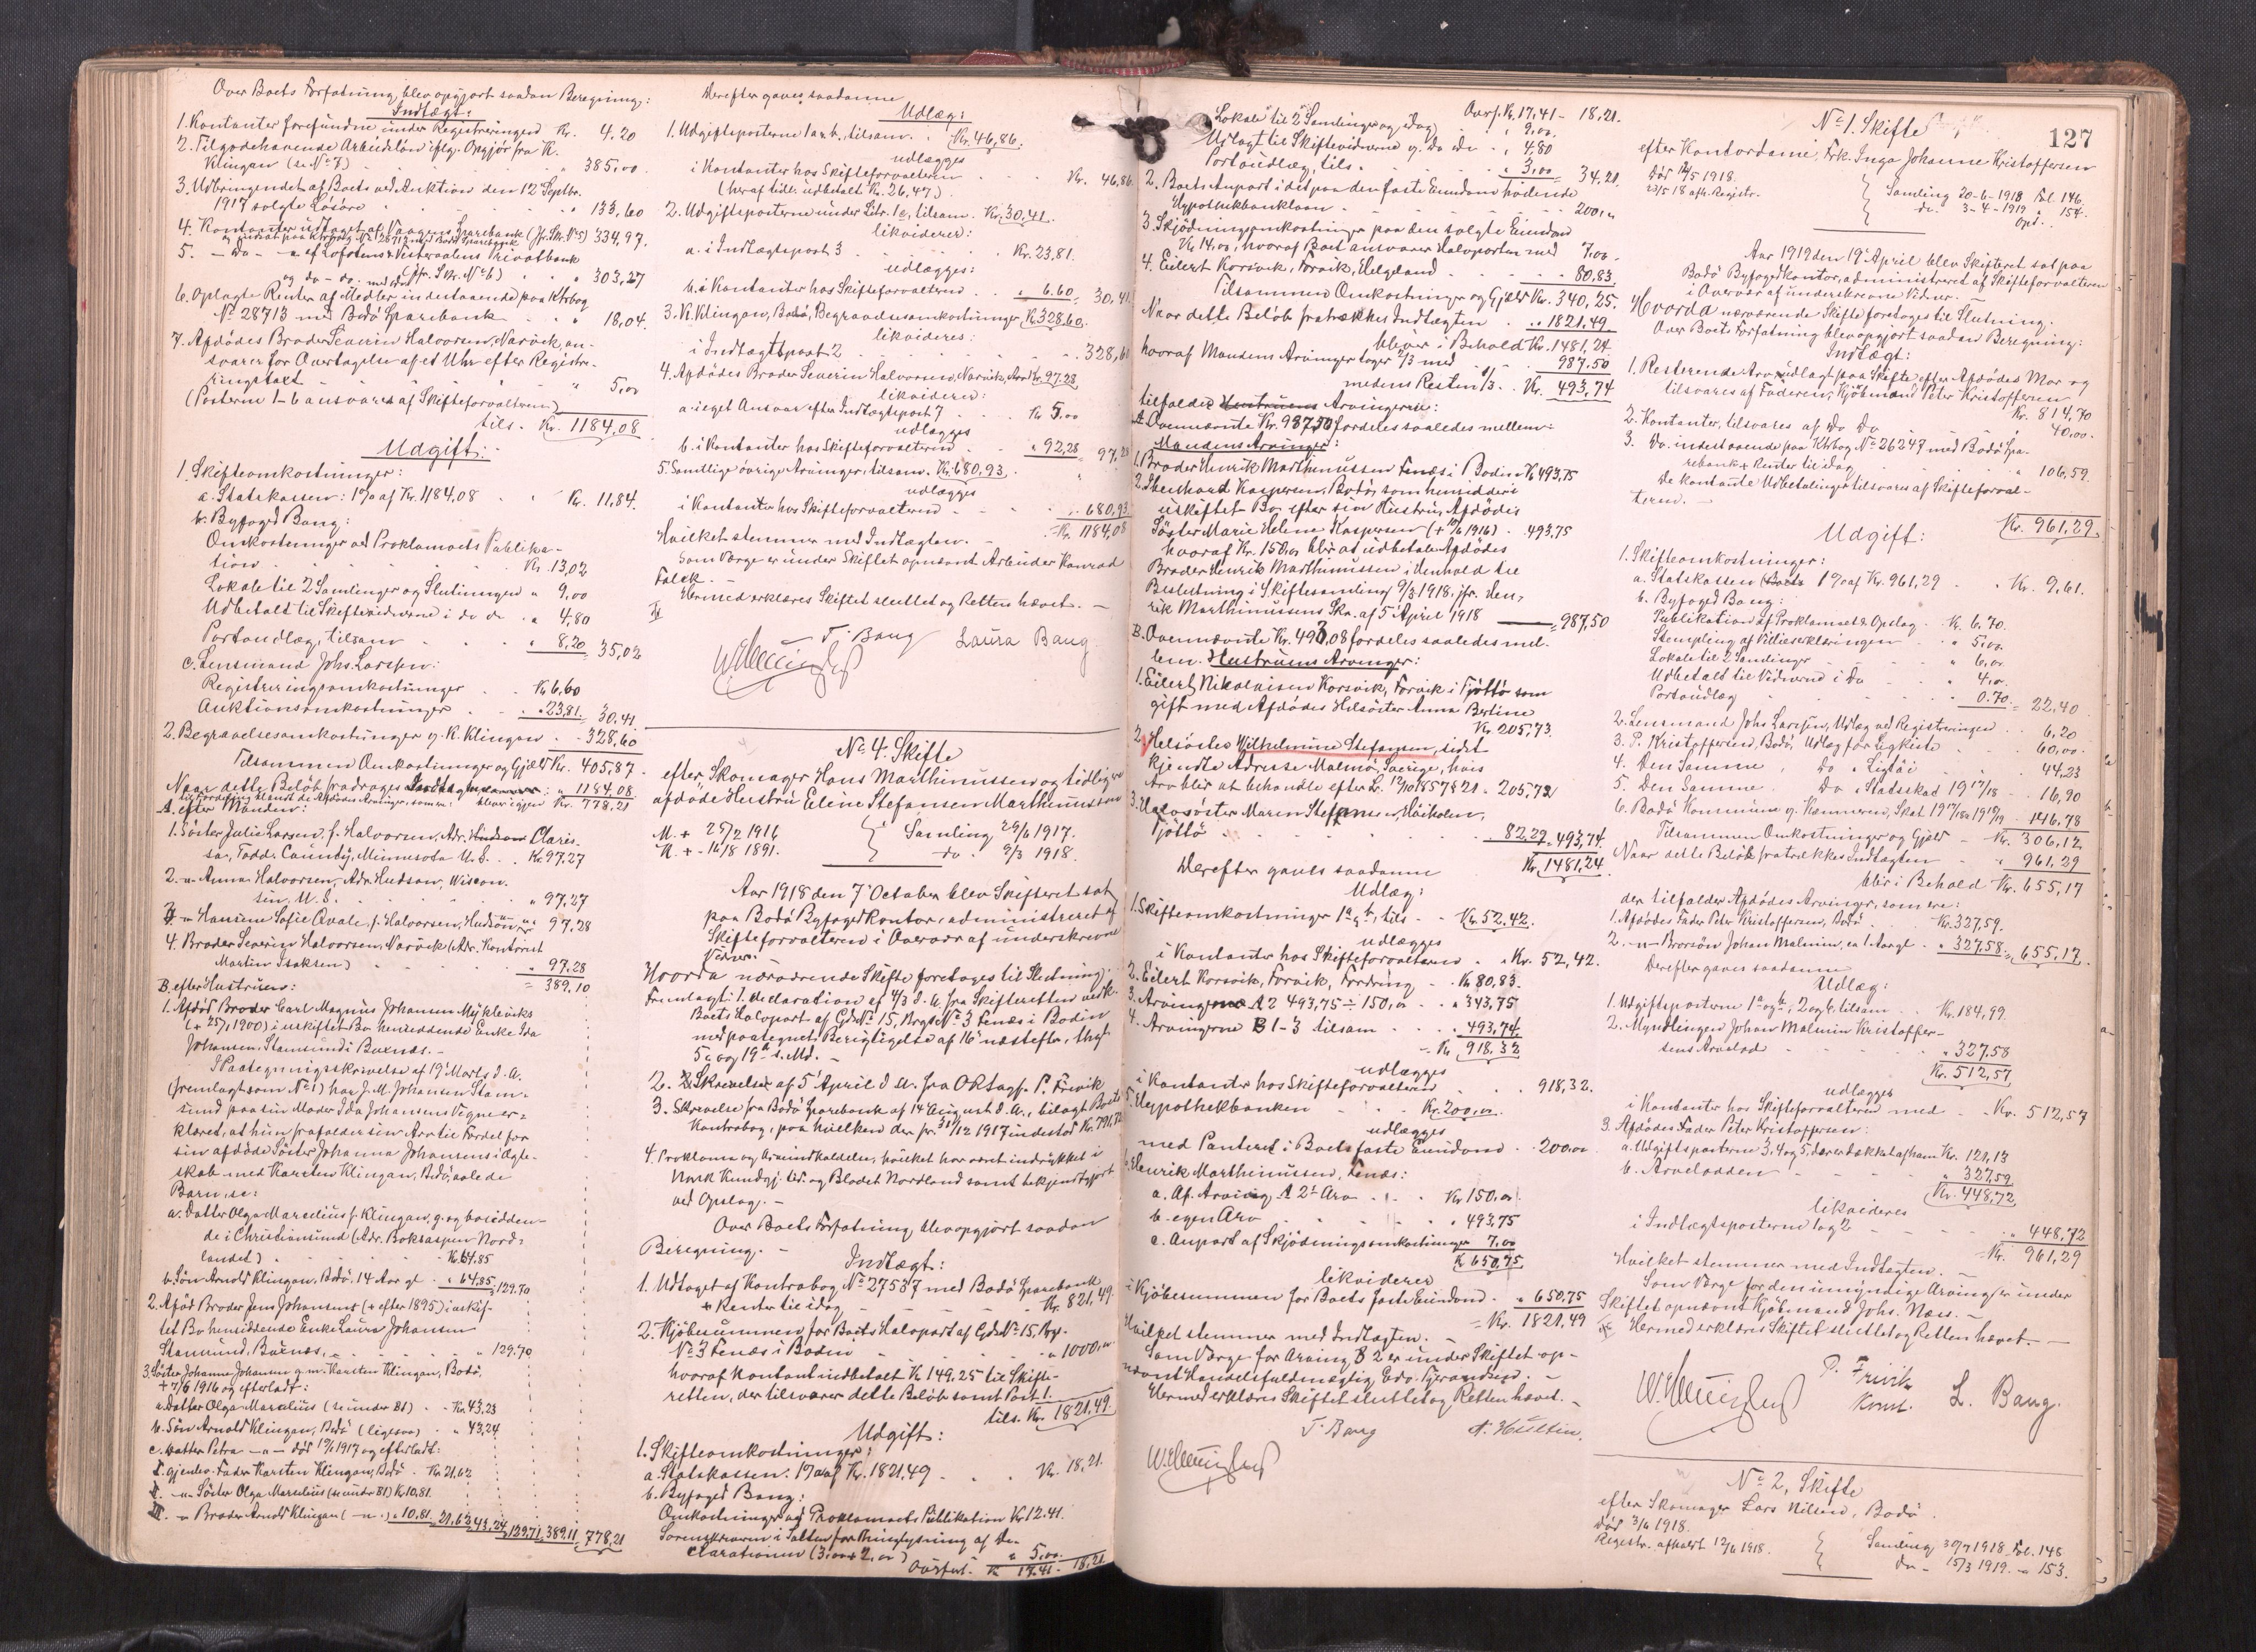 Over Boets Forfatning blev opgjort saadan Beregning:
Indtægt:
1. Kontanter forefundne under Registreringen Kr. 4.20
2. Tilgodehavende Arbeidsløn iflg. Opgjør fra K.
Klingan (se No 7) " 385,00
3. Udbringendet af Boets ved Auktion den 12 Septbr.
1917 solgte Løsøre " 133,60
4. Kontanter udtaget af Vaagens Sparebank (Jfr. Skr. No 5) 334,97.
og indsat paa Ktrbog No 28713 med Bodø Sparebank
5. - Do - af Lofotens & Vesteraalens Privatbank
og do - do. med do (jfr. Skr. No 6) " 303,27
6. Oplagte Renter af Midler indestaaende paa Ktrbog
No 28713 med Bodø Sparebank " 18,04.
7. Afdødes Broder Severin Halvorsen, Narvik, an-
svarer for Overtagelse af et Uhr efter Registre-
ringstaxt " 5,00
(Posterne 1-6 ansvares af Skifteforvalteren)
tils. Kr. 1184,08
Udgift:
1. Skifteomkostninger:
a. Statskassen: 1% af Kr. 1184,08 Kr. 11,84.
b. Byfoged Bang:
Omkostninger ved Proklamaets Publika-
tion Kr. 13,02
Lokale til 2 Samlinger og Slutningen " 9,00
Udbetalt til Skiftevidnerne i do do " 4,80
Portoudlæg, tilsam " 8,20 = 35,02
c. Lensmand Johs. Larssen:
Registreringsomkostninger Kr. 6,60
Auktionsomkostninger " 23,81 = 30,41
2. Begravelsesomkostninger v. K. Klingan - 328,60
Tilsammen Omkostninger og Gjæld Kr. 405,87.
Naar dette Beløb fradrages Indtægten " 1184,08
bliver igjen Kr. 778,21
til Fordeling blandt de Afdødes Arvinger, som er:
A. efter Manden:
1. Søster Julie Larsen, f. Halvorsen, Adr. Claris-
sa, Todd County, Minnesota U.S. Kr. 97.27
2. -"- Anna Halvorsen, Adr. Hudson, Wiscon-
sin, U.S. " 97,27
3. -"- Hansine Sofie Qvale, f. Halvorsen, Hudson " 97,28
4. Broder Severin Halvorsen, Narvik (Adr. Kontorist
Martin Isaksen) " 97.28
= 389,10
B. efter Hustruen:
1. Afdød Broder Carl Magnus Johansen Myklevik
(+ 25/1 1900) i uskiftet Bo hensiddende Enke Ida
Johansen, Stamsund i Buksnæs. -
I Paategningsskrivelse af 19 Marts d.A.
(fremlagt som No 1) har J. M. Johansen Stam-
sund paa sin Moder Ida Johansens Vegne er-
klæret, at hun frafalder sin Arv til Fordel for
sin afdøde Søster Johanna Johansens i Ægte-
skab med Karsten Klingan, Bodø, avlede
Barn, se:
a. Datter Olga Marcelius f. Klingan, g. og boidden-
de i Christiansund (Adr. Bokraspen Nord-
landet) Kr. 64.85
b. Søn Arnold Klingan, Bodø, 14 Aar gl. " 64,85 = 129.70
2. Afdød Broder Jens Johansens (+ efter 1895) i uskif-
tet Bo hensiddende Enke Laura Johansen
Stamsund, Buksnæs, " 129.70
3. Søster Johanna Johansen g. m. Karsten Klingan, Bodø,
+ 7/6 1916 og efterladt:
a. Datter Olga Marcelius (se under B1) Kr. 43,23
b. Søn Arnold Klingan, Bodø (ligesaa) " 43,24
c. Datter Petra -"- død 10/6 1917 og efterladt:
I. gjenlev. Fader Karsten Klingan, Bodø. Kr. 21,62
II. -"- Søster Olga Marcelius (se under B1) Kr. 10,81.
III. -"- Broder Arnold Klingan (-"-) " 10,81 = 21,62 = 43,24 = 129,71 = 389,11 = 778,21
Derefter gaves saadanne
Udlæg:
1. Udgiftsposterne 1 a & b, tilsam. Kr. 46,86.
udlægges
i Kontanter hos Skifteforvalteren Kr. 46,86.
(heraf tidl. udbetalt Kr. 26,47)
2. Udgiftsposterne under Litr. 1c, tilsam. Kr. 30,41.
likvideres:
a. i Indtægtspost 3 Kr. 23,81.
udlægges:
b. i Kontanter hos Skifteforvalteren " 6.60 = 30,41
3. K. Klingan, Bodø, Begravelsesomkostninger Kr. 328,60.
likvideres:
i Indtægtspost 2 328,60
4. Afdødes Broder Severin Halvorsen, Narvik, Arv Kr. 97.28
likviderer:
a. i eget Ansvar efter Indtægtspost 7 Kr. 5,00
udlægges
b. i Kontanter hos Skifteforvalteren " 92,28 = 97,28
5. Samtlige øvrige Arvinger, tilsam. Kr. 680,93.
udlægges
i Kontanter hos Skifteforvalteren 680,93
= Kr. 1184,08
Hvilket stemmer med Indtægten. -
Som Værge er under Skiftet opnævnt Arbeider Konrad
Falck. -
Hermed erklæres Skiftet sluttet og Retten hævet. -
T. Bang Laura Bang
No 4. Skifte
efter Skomager Hans Marthinussen og tidligere
afdøde Hustru Eline Stefansen Marthinussen
M. + 25/2 1916 Samling 29/6 1917.
H. + - 16/8 1891. do. 9/3 1918.
Aar 1918 den 7 October blev Skifteret sat
paa Bodø Byfogedkontor, administreret af
Skifteforvalteren i Overvær af underskrevne
Vidner.
Hvorda nærværende Skifte foretoges til Slutning.
Fremlagt: 1. Declaration af 4/3 d.A. fra Skifteretten vedk.
Boets Halvpart af Gds No 15, Brgs No 3 Fenæs i Bodin
med paategnet Berigtigelse af 16 næstefter, thgl.
5te og 19de s. Md. -
2. Skrivelse af 5 April d.A. fra ORsagf. P. Frivik
3. Skrivelse fra Bodø Sparebank af 14 August d.A., bilagt Boets
Kontrabog, paa hvilken der pr. 31/12 1917 indestod Kr. 791,72
4. Proklama og Arveindkaldelse, hvilket har været indrykket i
Norsk Kundgj. tid. og Bladet Nordland samt bekjendtgjort
ved Opslag. -
Over Boets Forfatning blev opgjort saadan
Beregning. -
Indtægt:
1. Udtaget af Kontrabog No 27537 med Bodø Sparebank
+ Renter til idag Kr. 821,49.
2. Kjøbesummen for Boets Halvpart af Gds No 15, Brgs-
No 3 Fenæs i Bodin " 1000,00
hvoraf kontant indbetalt Kr. 149,25 til Skifte-
retten, der tilsvarer dette Beløb samt Post 1.
tils. Kr. 1821,49.
Udgift:
1. Skifteomkostninger:
a. Statskassen: 1% af Kr. 1821,49 Kr. 18,21.
b. Byfoged Bang:
Omkostninger ved Proklamaets Publikation Kr. 12.41.
Sorenskriveren i Salten for Thinglysning af De-
clarationen (3,00 + 2,00) " 5,00.
Overført Kr. 17,41 - 18,21.
127
Overf. Kr. 17,41 - 18,21.
Lokale til 2 Samlinger og idag " 9,00.
Udlagt til Skiftevidnerne v. do do " 4,80
Portoudlæg, tils. " 3,00 = 34,21.
2. Boets Anpart i det paa den faste Eiendom heftende
Hypothekbanklaan 200,00
3. Skjødningsomkostninger paa den solgte Eiendom
Kr. 14,00, hvoraf Boet ansvarer Halvparten med 7,00.
4. Eilert Korsvik, Forvik, Helgeland 80,83.
Tilsammen Omkostninger og Gjæld Kr. 340,25.
Naar dette Beløb fratrækkes Indtægten " 1821,49
bliver i Behold Kr. 1481,24
hvoraf Mandens Arvinger tager 2/3 med 987,50
medens Resten 1/3 Kr. 493,74
tilfalder Hustruens Arvingerne:
A. Ovennævnte Kr. 987,50 fordeles saaledes mellem:
Mandens Arvinger:
1. Broder Henrik Marthinussen Fenæs i Bodin Kr. 493,75
2. Eberhard Kaspersen, Bodø, som hensidder i
uskiftet Bo efter sin Hustru, Afdødes
Søster Marie Helene Kaspersen (+ 19/6 1916) 493,75
hvoraf Kr. 150,00 blir at udbetale Afdødes
Broder Henrik Marthinussen i Henhold til
Beslutning i Skiftesamling 9/3 1918, jfr. Hen-
rik Marthinussens Skr. af 5 April 1918 = 987,50
B. Ovennævnte Kr. 493,08 fordeles saaledes mel-
lem. Hustruens Arvinger:
1. Eilert Nikolaisen Korsvik, Forvik i Tjøttø som
gift med Afdødes Helsøster Anna Bertine
Kr. 205,73.
2. Helsøster Wilhelmine Stefansen, sidst
kjendte Adresse Malmø, Sverige, hvis
Arv blir at behandle efter L. 12/10 1857 § 21. 205,72
3. Halvsøster Maren Stefansen, Høiholm,
Tjøttø 82,29 = 493,74.
Kr. 1481,24
Derefter gaves saadanne
Udlæg:
1. Skifteomkostninger 1a & b, tils. Kr. 52.42.
udlægges
i Kontanter hos Skifteforvalteren Kr. 52,42.
2. Eilert Korsvik, Forvik, Fordring Kr. 80,83.
3. Arving A2 493,75 ÷ 150,00 " 343,75
4. Arvingerne B 1-3 tilsam " 493,74.
= Kr. 918,32
udlægges
i Kontanter hos Skifteforvalteren 918,32.
5. Hypothekbanken Kr. 200,00.
udlægges
med Panteret i Boets faste Eiendom 200,00
6. Henrik Marthinussen, Fenæs:
a. Af Arving A 2s Arv Kr. 150,00
b. egen Arv " 493,75
c. Anpart af Skjødningsomkostninger 7,00
Kr. 650,75
likviderer
i Kjøbesummen for Boets faste Eiendom " 650,75
= Kr. 1821,49
Hvilket stemmer med Indtægten. -
Som Værge for Arving B 2 er under Skiftet op-
nævnt Handelsfuldmægtig Edv. -
Hermed erklæres Skiftet sluttet og Retten hævet. -
T. Bang A. Hultin.
No 1. Skifte
efter Kontordame, Frk. Inga Johanne Kristoffersen
død 14/5 1918.
23/5 18 afh. Registr.
Samling 20-6-1918 Fol. 146.
do. 3-4-1919 " 154.
Aar 1919 den 19 April blev Skifteret sat paa
Bodø Byfogedkontor, administreret af Skifteforvalteren
i Overvær af underskrevne Vidner. -
Hvorda nærværende Skifte foretoges til Slutning.
Over Boets Forfatning blev opgjort saadan Beregning:
Indtægt:
1. Resterende Arv udlagt paa Skifte efter Afdødes Mor og
tilsvares af Faderen, Kjøbmand Peter Kristoffersen
Kr. 814,70
2. Kontanter, tilsvares af Do Do " 40,00.
3. Do. indestaaende paa Ktrbog No 26247 med Bodø Spa-
rebank + Renter til idag " 106,59.
De kontante Udbetalinger tilsvares af Skifteforval-
teren. -
Kr. 961,29.
Udgift:
1. Skifteomkostninger:
a. Statskassen 1% af Kr. 961,29 Kr. 9,61.
b. Byfoged Bang:
Publikation af Proklamaet & Opslag Kr. 6.70.
Stempling af Villieserklæringen " 5,00.
Lokale til 2 Samlinger " 6,00.
Udbetalt til Vidnerne i Do " 4,00.
Portoudlæg 0.70 = 22,40
2. Lensmand Johs Larssen, Udlæg ved Registreringen 6,20
3. P. Kristoffersen, Bodø, Udlæg for Ligkiste 60,00.
4. Den Samme, Do " Ligtøi 44,23
5. Den Samme Do " Statsskat 1917/18 16,90
6. Bodø Kommune v. Kæmneren, Skat 1917/18 & 1918/19 146,78
Tilsammen Omkostninger og Gjæld Kr. 306,12
Naar dette Beløb fratrækkes Indtægten " 961,29
blir i Behold Kr. 655,17
der tilfalder Afdødes Arvinger, som er:
1. Afdødes Fader Peter Kristoffersen, Bodø Kr. 327,59.
2. -"- Brorsøn Johan Malmin, ca 1 Aar gl. " 327,58 = 655,17.
Derefter gaves saadanne
Udlæg:
1. Udgiftsposterne 1a og b, 2 og 6, tilsam Kr. 184,99.
2. Myndlingen Johan Malmin Kristoffer-
sens Arvelod " 327.58
Kr. 512,57
udlægges
i Kontanter hos Skifteforvalteren med Kr. 512,57
3. Afdødes Fader Peter Kristoffersen:
a. Udgiftsposterne 3, 4 og 5, der er dækket af ham Kr. 121,13
b. Arvelodden " 327,59
Kr. 448,72
likvideres
i Indtægtsposterne 1 og 2 " 448,72
= Kr. 961,29
Hvilket stemmer med Indtægten. -
Som Værge for den umyndige Arving er under
Skiftet opnævnt Kjøbmand Johs. Næss. -
Hermed erklæres Skiftet sluttet og Retten hævet. -
P. Frivik
Konst.
L. Bang.
No 2, Skifte
efter Skomager Lars Nilsen, Bodø.
død 3/6 1918.
Registr. afholdt 12/6 1918.
Samling 30/7 1918 Fol. 148
do - 15/3 1919. " 153.